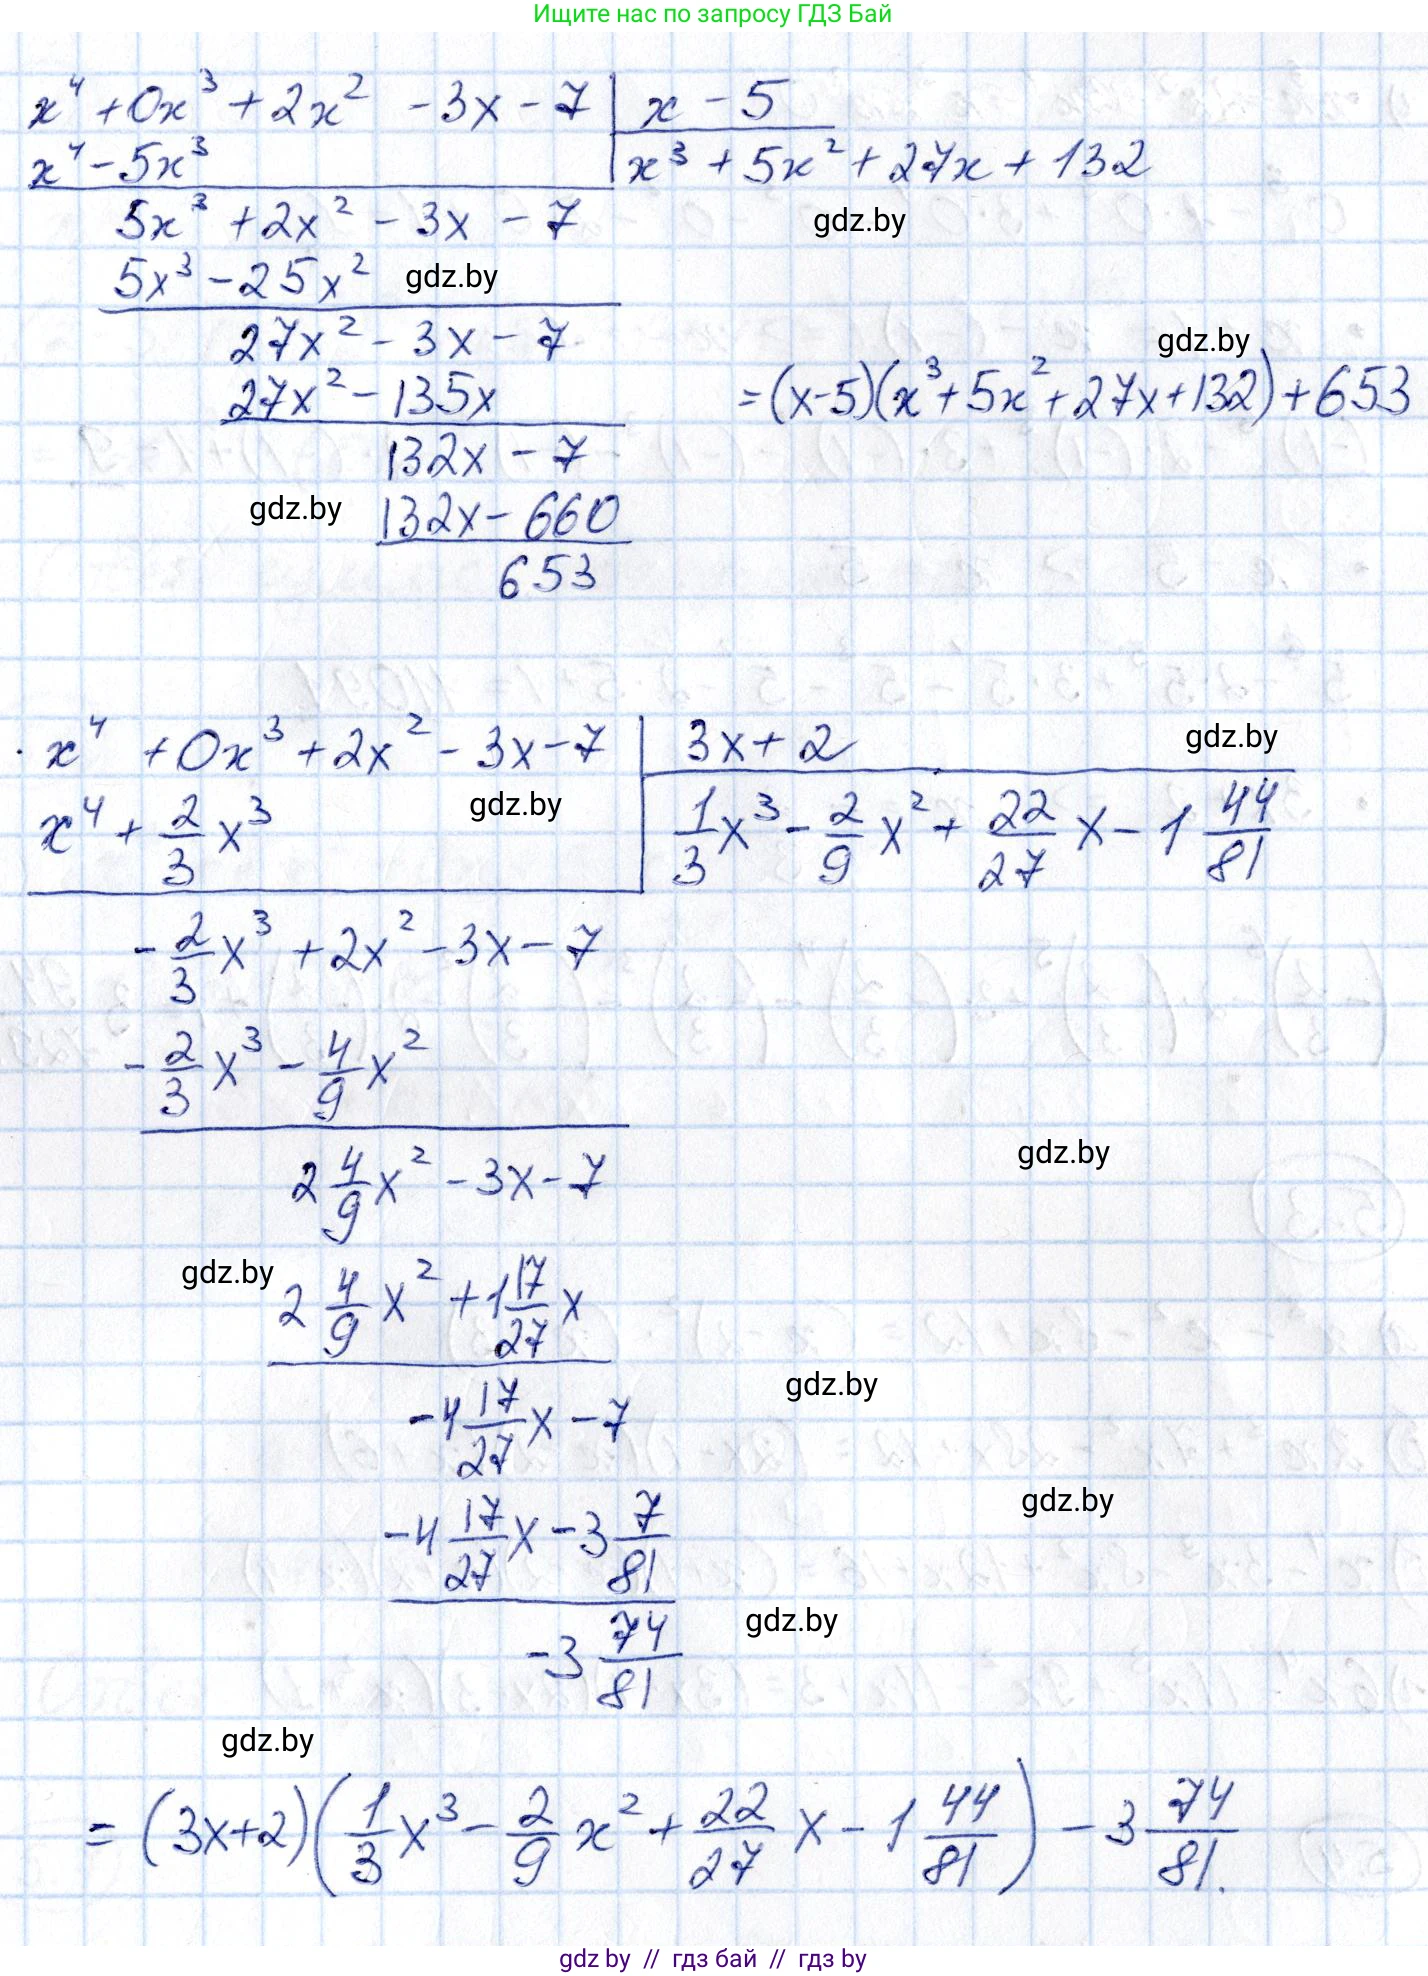 Ищите нас по запросу ГДЗ Бай
x⁴ + 0x³ + 2x² - 3x - 7 | x - 5
x⁴ - 5x³ | x³ + 5x² + 27x + 132
5x³ + 2x² - 3x - 7
gdz.by
5x³ - 25x²
gdz.by
27x² - 3x - 7
gdz.by
27x² - 135x
= (x-5)(x³+5x²+27x+132)+653
132x - 7
gdz.by
132x - 660
653
· x⁴ + 0x³ + 2x² - 3x - 7 | 3x + 2
gdz.by
x⁴ + 2/3 x³
gdz.by
1/3 x³ - 2/9 x² + 22/27 x - 1 44/81
- 2/3 x³ + 2x² - 3x - 7
- 2/3 x³ - 4/9 x²
gdz.by
2 4/9 x² - 3x - 7
gdz.by
2 4/9 x² + 1 17/27 x
gdz.by
-4 17/27 x - 7
gdz.by
-4 17/27 x - 3 7/81
gdz.by
-3 74/81
gdz.by
= (3x+2)(1/3 x³ - 2/9 x² + 22/27 x - 1 44/81) - 3 74/81.
gdz by // гдз бай // гдз by